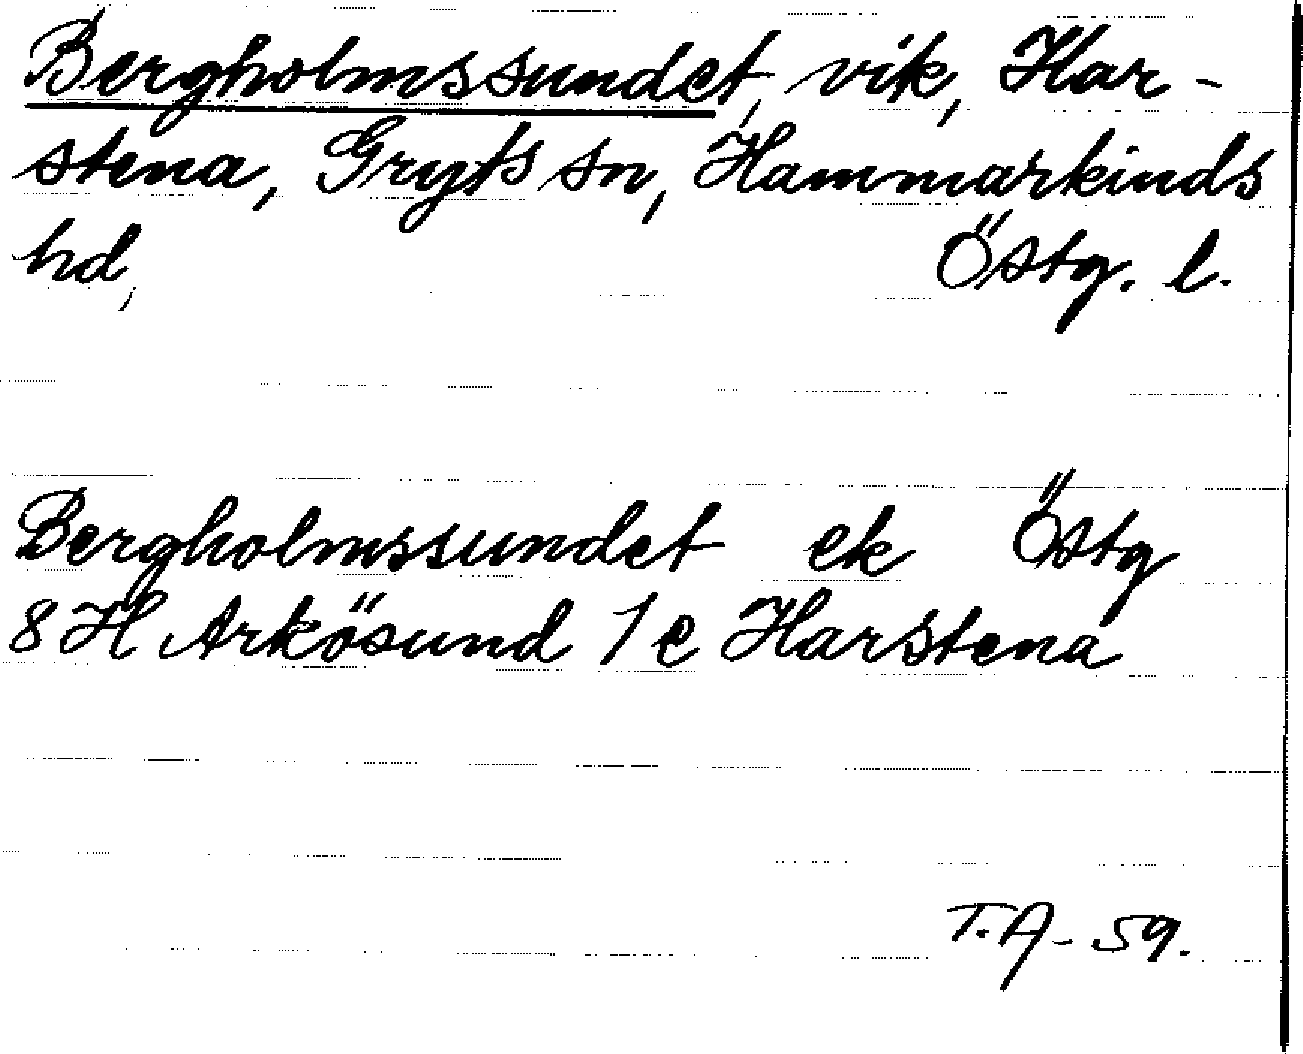 Bergholmssundet, vik, Har-
stena, Gryts sn, Hammarkinds
hd, Östg. l.
Bergholmssundet ek Östg
8H Arkösund 1c Harstena
T.A-59.